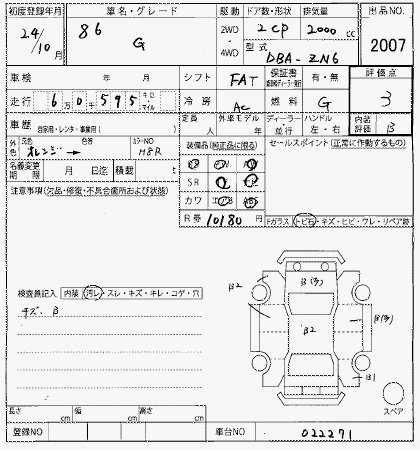 初度登録年月 車名・グレード 駆動 ドア数・形状 排気量 出品NO.
24年 10月 86 G 2WD 4WD 2 CP 2000cc 2007
型式 DBA-ZN6
車検 年 月 シフト FAT 保証書 有・無 評価点
走行 6万0千595 キロ マイル 冷房 AC 燃料 G 3
車歴 自家用・レンタ・事業用( ) 定員 人 外車モデル 年 ディーラー 並行 ハンドル 左・右 内装評価 B
外色 元色 オレンジ 色替 カラーNO H8R 装備品(純正品に限る) セールスポイント(正常に作動するもの)
名義変更期限 月 日迄 積載 t
SR
注意事項(欠品・修復・不具合箇所および状態) カワ
R券 10180円 Fガラス トビ石・キズ・ヒビ・ワレ・リペア跡
B2 B(多)
検査員記入 内装 汚レ・スレ・キズ・キレ・コゲ・穴
B2 B(多)
キズ・B
B1
スペア
長さ cm 幅 cm 高さ cm
登録NO 車台NO 022271